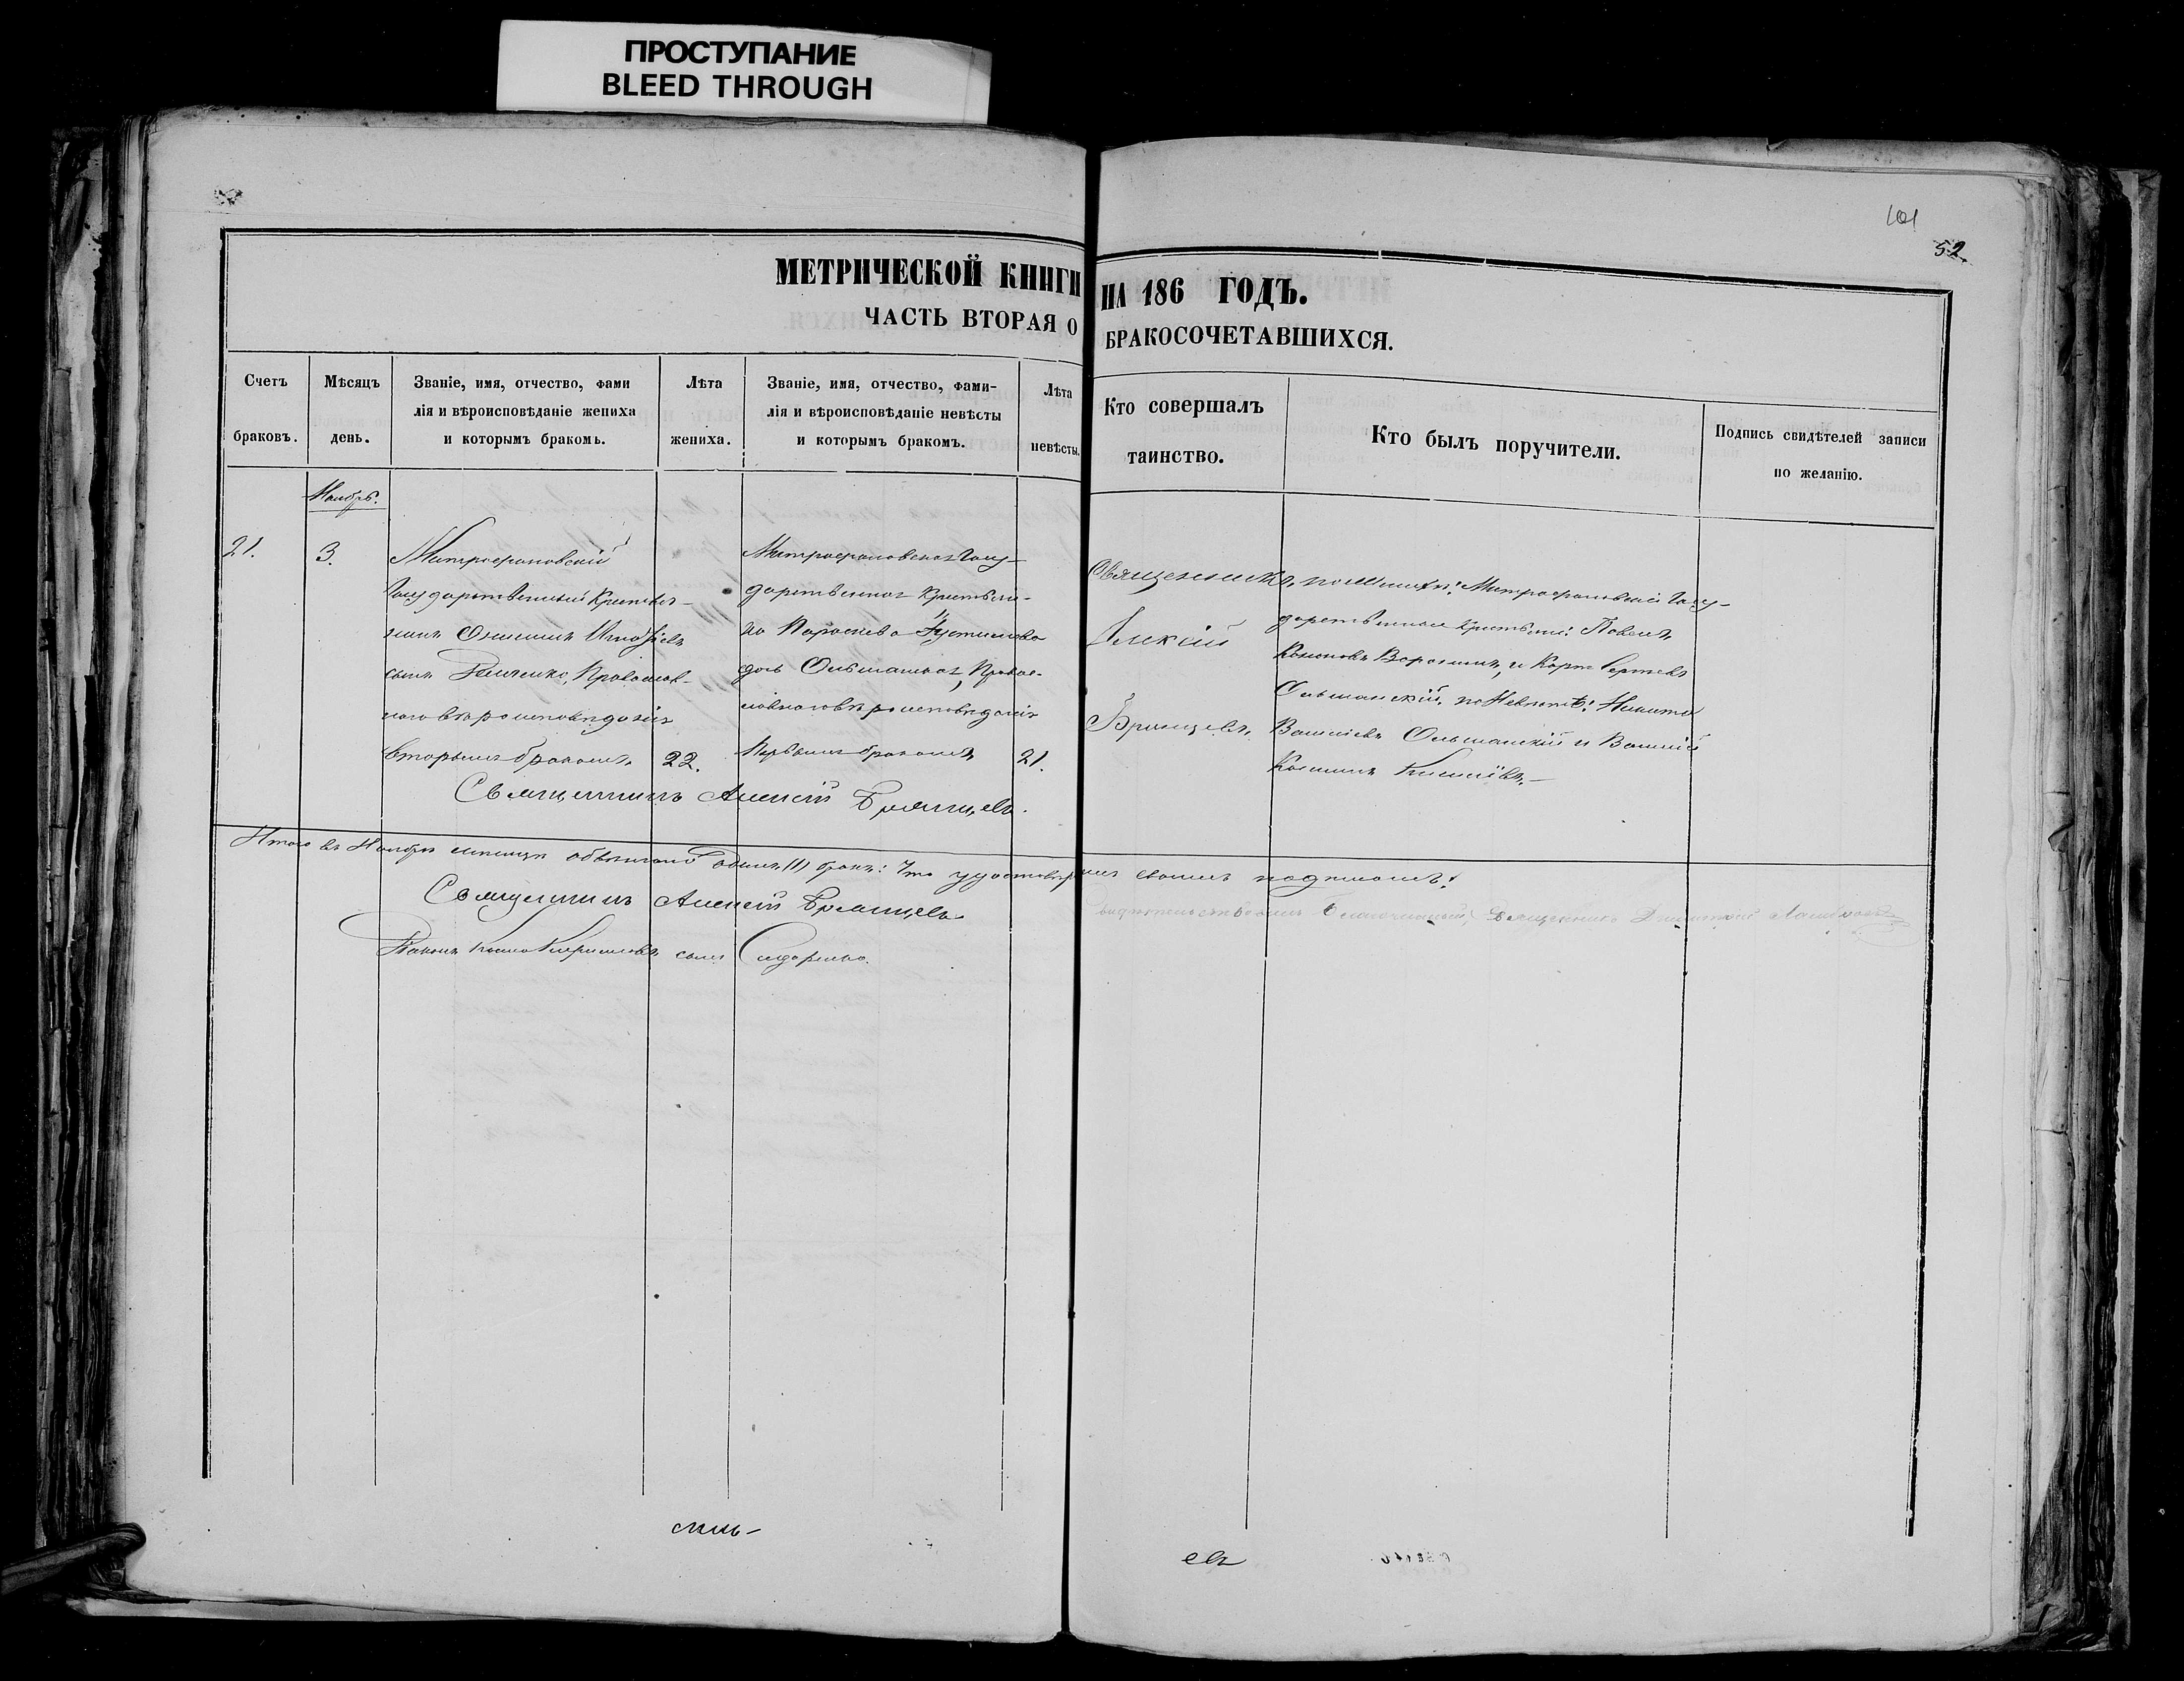 ПРОСТУПАНИЕ
BLEED THROUGH
101
52.
МЕТРИЧЕСКОЙ КНИГИ НА 186 ГОДЪ.
ЧАСТЬ ВТОРАЯ О БРАКОСОЧЕТАВШИХСЯ.
Счетъ
браковъ.
Мѣсяцъ
день.
Званіе, имя, отчество, фами
лія и вѣроисповѣданіе жениха
и которымъ бракомъ.
Лѣта
жениха.
Званіе, имя, отчество, фами-
лія и вѣроисповѣданіе невѣсты
и которымъ бракомъ.
Лѣта
невѣсты.
Кто совершалъ
таинство.
Кто былъ поручители.
Подпись свидѣтелей записи
по желанію.
Ноябрь.
21.
3.
Митрофановскій
Государственный Крестья-
нинъ Онисимъ сынъ
Православ-
наго вѣроисповѣданія
вторымъ бракомъ
22.
Митрофановская Госу-
дарственная Крестьян-
ка Параскева Іустинова
дочь Ольшанская, Право-
славнаго вѣроисповѣданія
Первымъ бракомъ
21.
Священникъ
Алексій
Брянцевъ.
по Женихѣ: Митрофановскіе Госу-
дарственные Крестьяне: Павелъ
и Карпъ Сергѣевъ
Ольшанскій, по Невѣстѣ: Никита
Васильевъ Ольшанскій и Василій
Священникъ Алексій Брянцевъ.
Итого въ Ноябрѣ мѣсяцѣ обвѣнчанъ одинъ (1) бракъ: Что удостовѣряемъ своимъ подписомъ:
Священникъ Алексій Брянцевъ
Дьяконъ Косма Кирилловъ сынъ Сидоренко.
Свидѣтельствовалъ Благочинный, Священникъ Димитрій
евъ